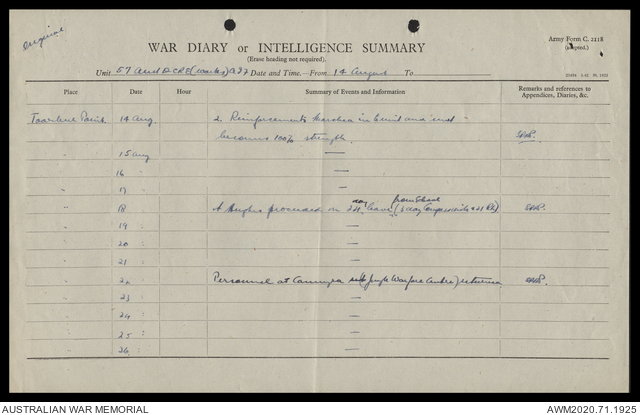 Original
Army Form C. 2118
(adapted.)
WAR DIARY or INTELLIGENCE SUMMARY
(Erase heading not required).
Unit 57 Aust DCRE (Works) Date and Time.—From 14 August To
Place Date Hour Summary of Events and Information Remarks and references to
Appendices, Diaries, &c.
14 Aug 2 Reinforcements marched in & unit
becomes 100% strength.
" 15 aug —
" 16 —
" 17 —
" 18 Hughes proceeded on 24 day leave from
" 19 " —
" 20 " —
" 21 " —
" 22 " Personnel at Canungra (Jungle Warfare Centre) returned
" 23 " —
" 24 " —
" 25 " —
" 26 " —
AUSTRALIAN WAR MEMORIAL AWM2020.71.1925